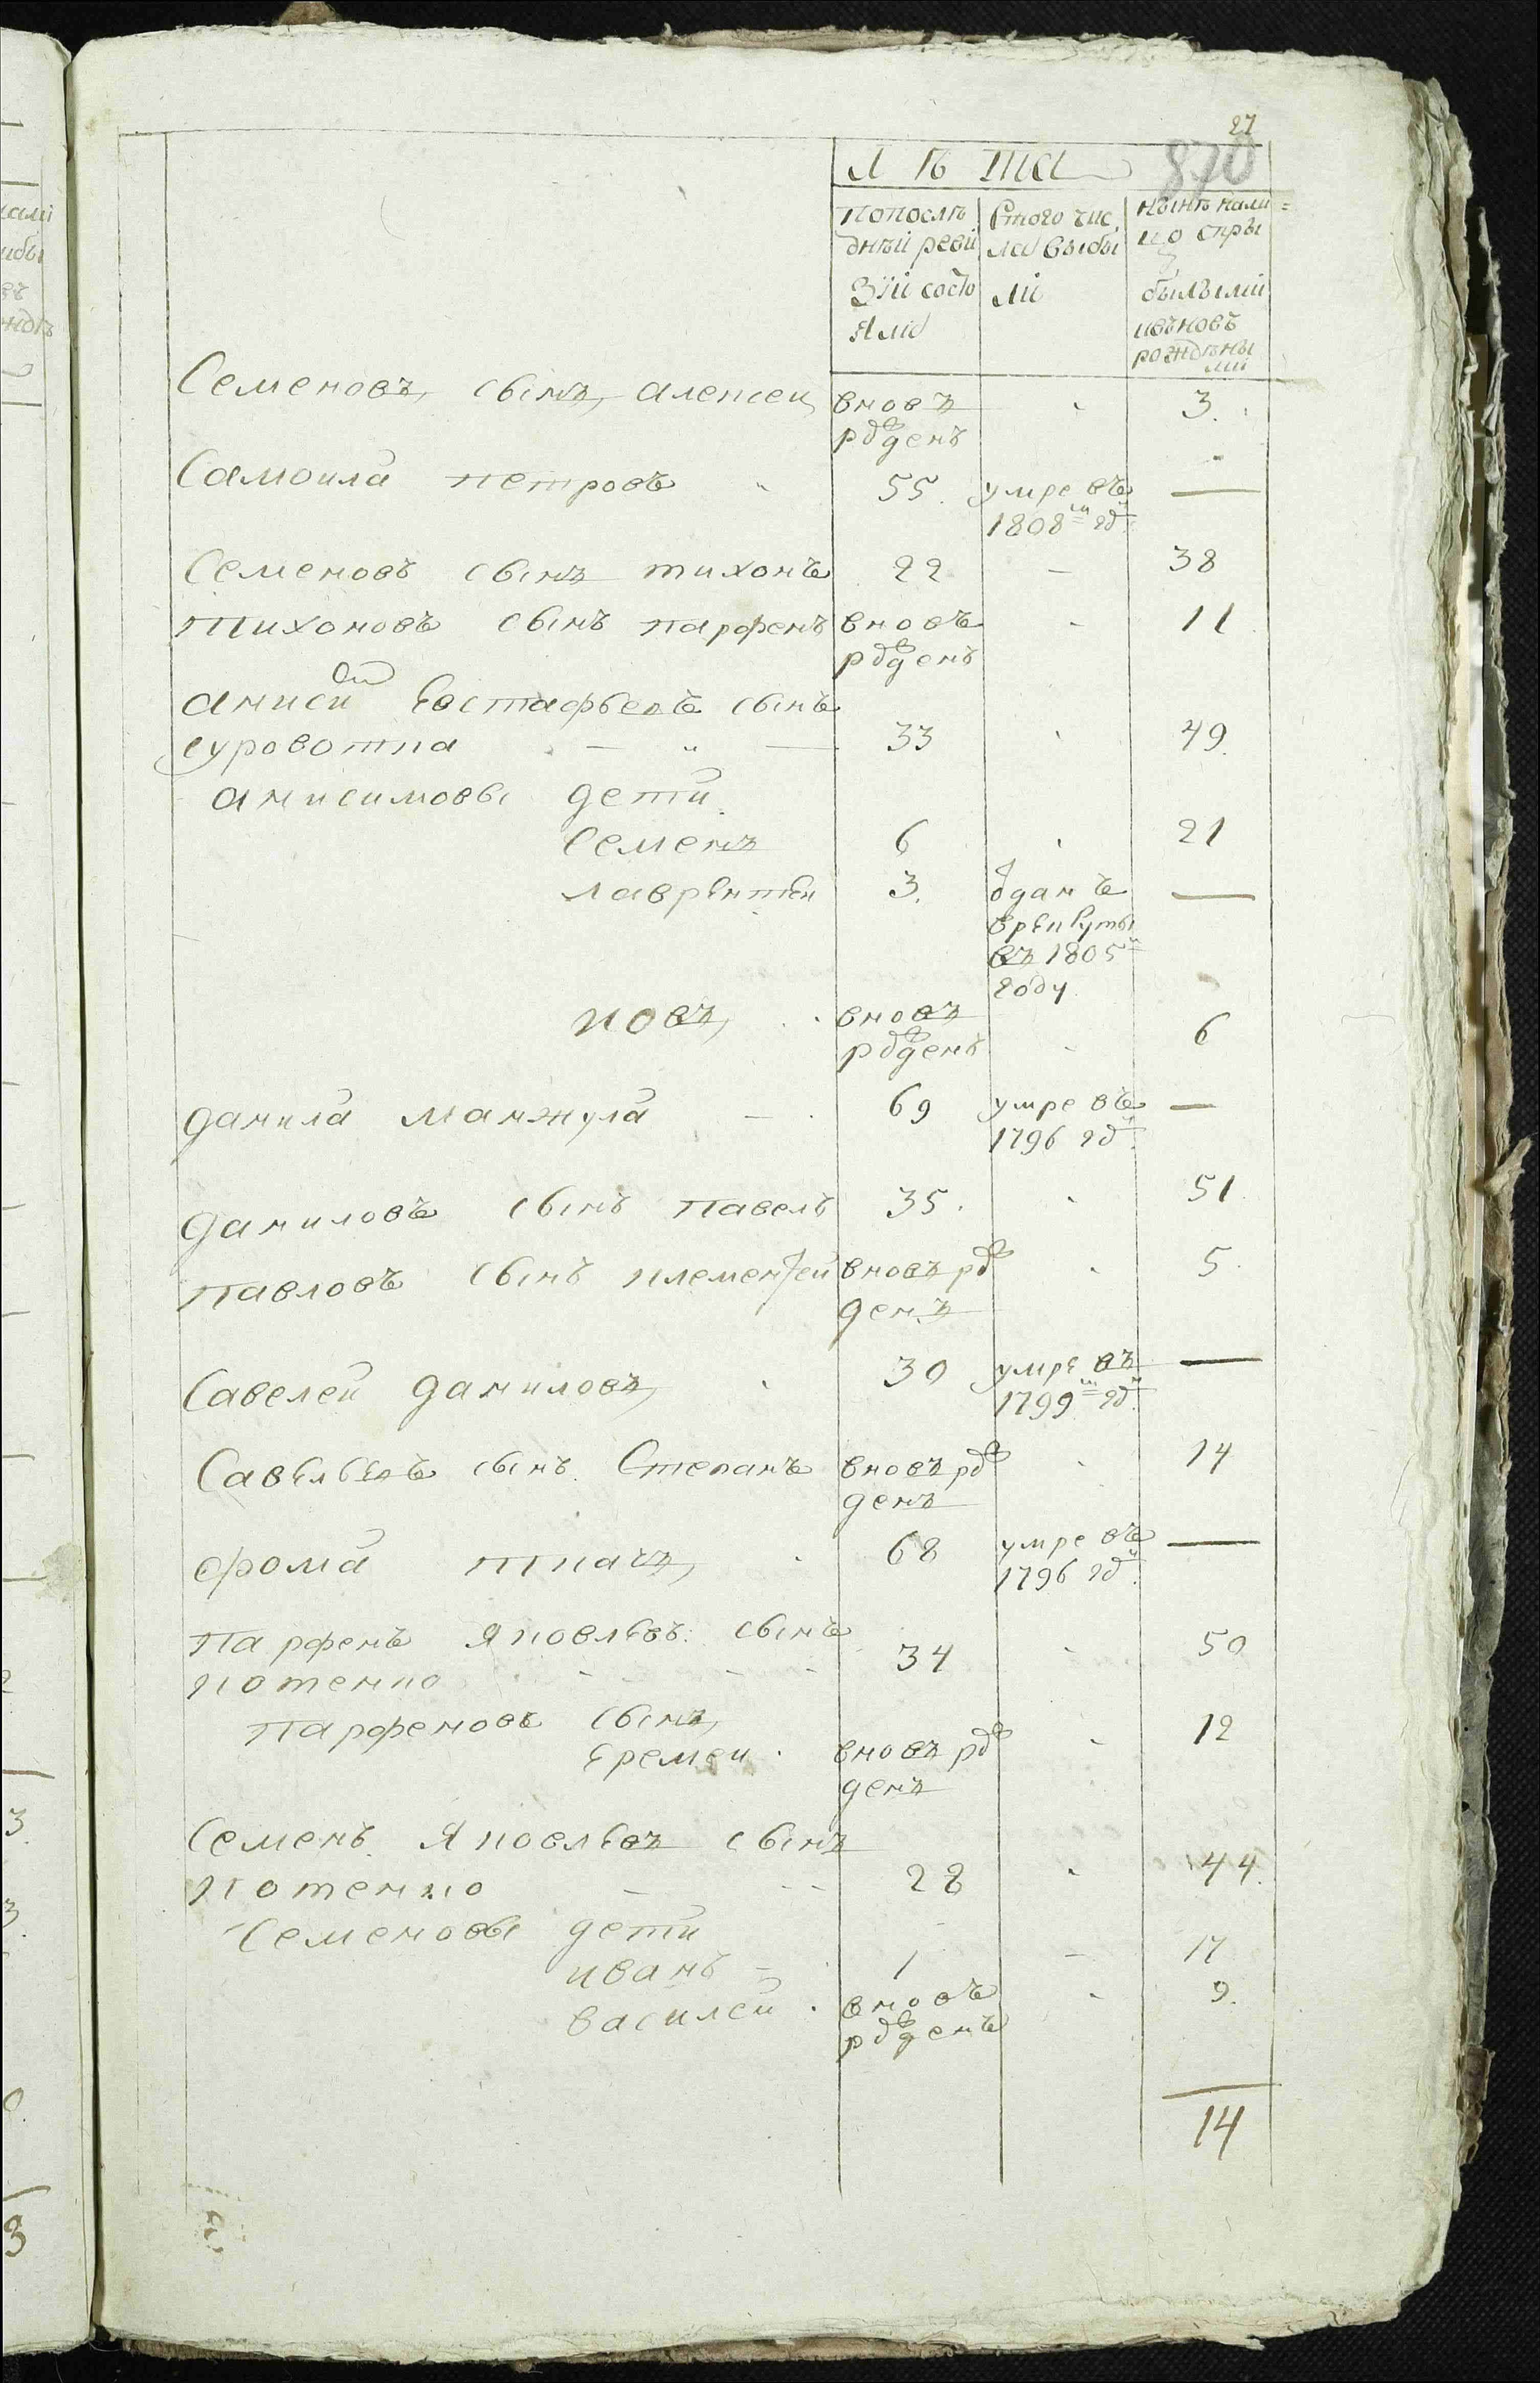 27
870
Лѣта
попослѣ
днѣй реви
зіи состо
яло
Стого чис
ла выбы
ло
нынѣ нали
цо спры
былыми
ивъновъ
рожденны
ми
Семеновъ сынъ алексей вновъ 3.
рождденъ
Самоила петровъ 55. умре въ —
1808м гд.
Семеновъ сынъ тихонъ 22 — 38
тихоновъ сынъ парфенъ вновъ 11
рождденъ
аниси Евстафьевъ сынъ
суровотка — " — 33 49.
анисимовы дети
Семенъ 6 21
лаврентей 3. одан въ —
врекруты
въ 1805м
году
иовъ вновъ 6
рождденъ
данила манжула — 69 умре въ —
1796 гд.
даниловъ сынъ павелъ 35. 51
павловъ сынъ клементей вновъ рож 5.
денъ
Савелей даниловъ 30 умре въ —
1799м гд.
Савельевъ сынъ Степанъ вновъ рож 14
денъ
фома ткачъ 68 умре въ —
1796 гд.
парфенъ яковлевъ сынъ
котенко 34 50
парфеновъ сынъ
еремей вновъ рож 12
денъ
Семенъ яковлевъ сынъ
котенко — 28 44.
Семеновы дети
иванъ — 1 — 17
василей вновъ 9.
рождденъ
14